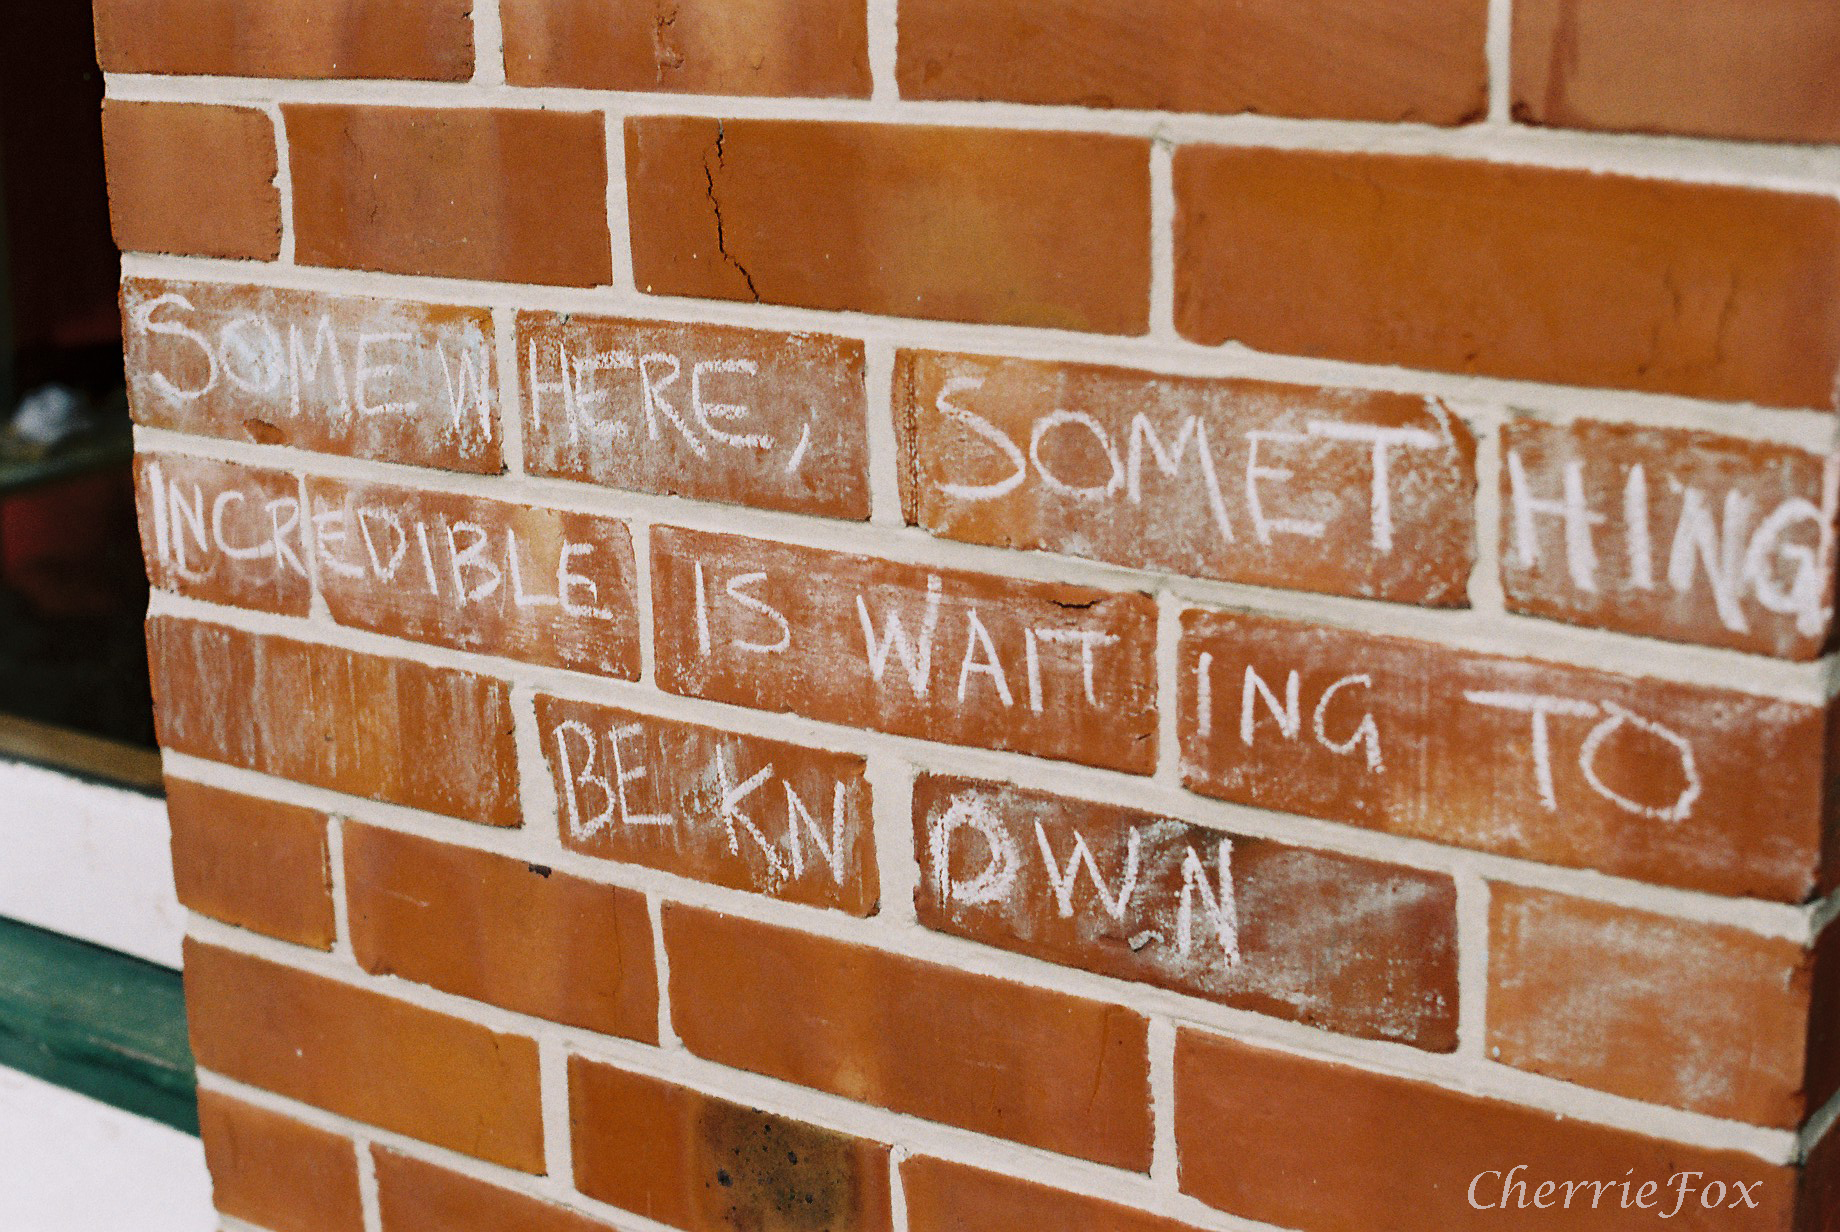 SOMEWHERE, SOMETHING
INCREDIBLE IS WAITING TO
BE KNOWN
CherrieFox